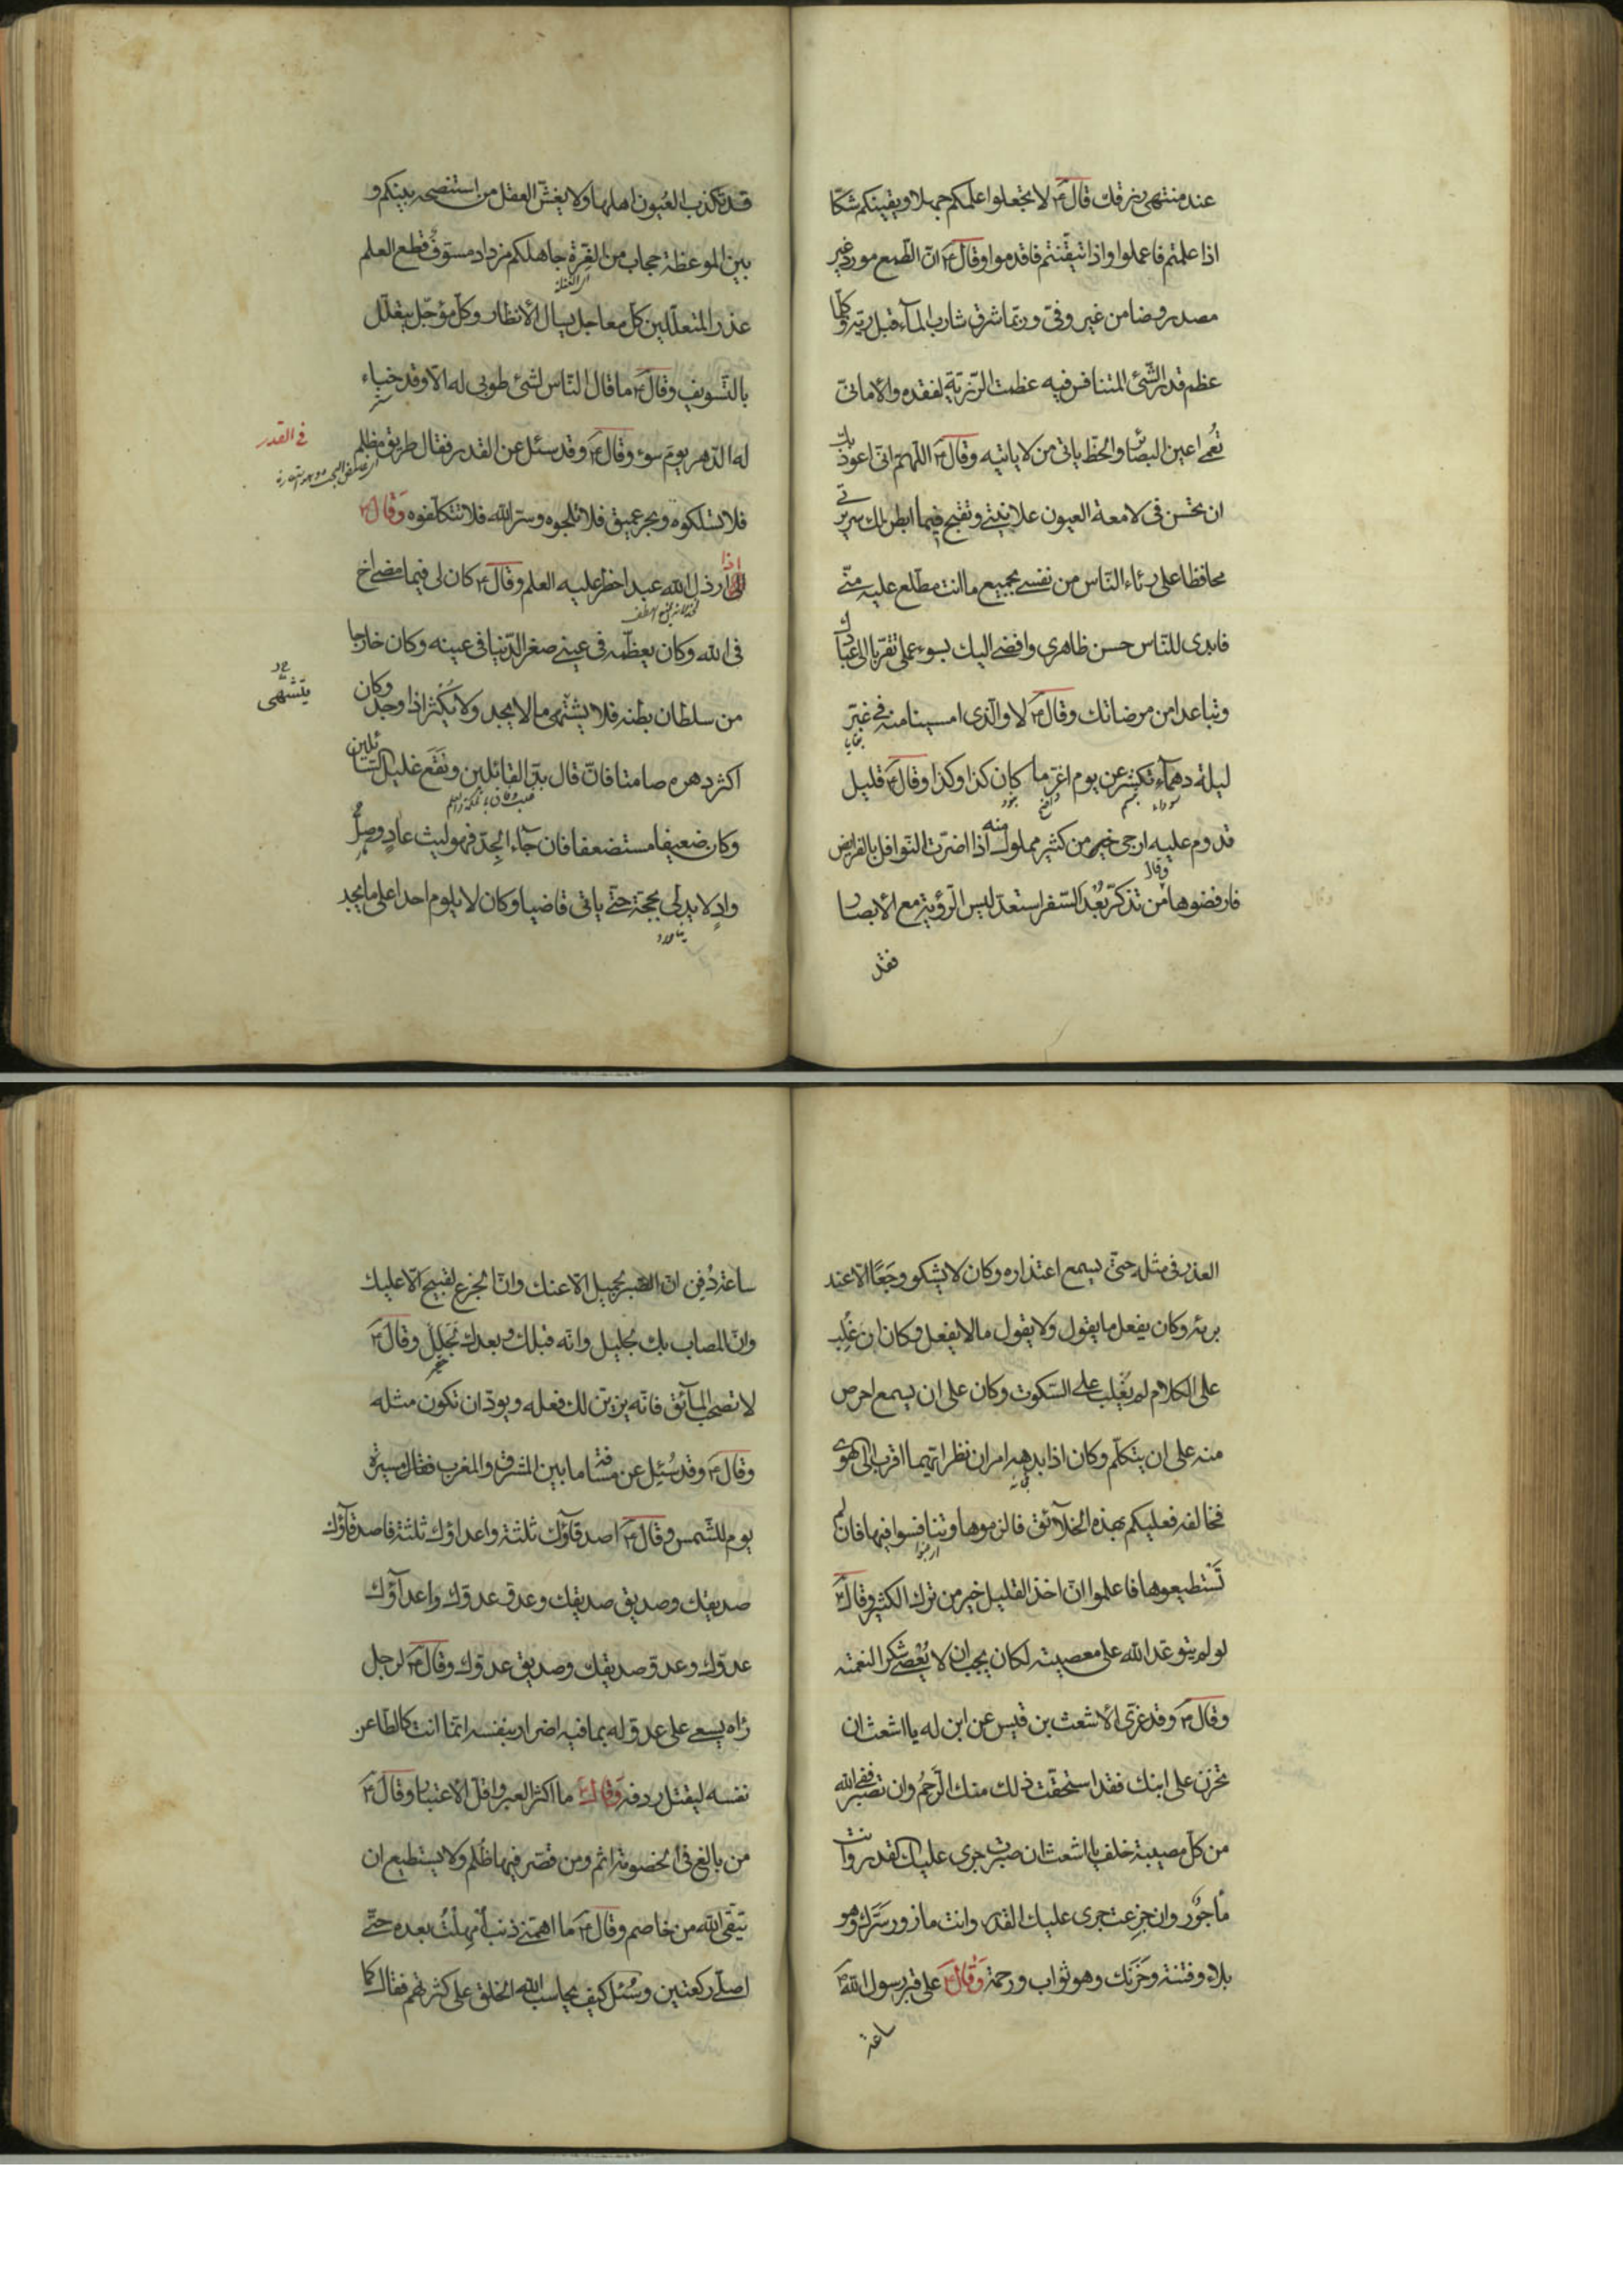 عند منتهى رزقك قال ع لا تجعلوا علمكم جهلا ويقينكم شكّا
اذا علمتم فاعملوا واذا تيقّنتم فاقدموا وقال ع انّ الطّمع مورد غير
مصدر وضامن غير وفىّ وربّما شرق شارب المآء قبل ريّه وكلّما
عظم قدر الشّئ المتنافس فيه عظمت الرّزيّة لفقده والأمانىّ
تُعمى اعين البصآئر والحظّ ياتى من لا ياتيه وقال ع اللهمّ انّى اعوذ بك
ان تحسن فى لامعة العيون علانيتى وتقبح فيما ابطن لك سريرتى
محافظا على رئاء النّاس من نفسى بجميع ما انت مطّلع عليه منّى
فابدى للنّاس حسن ظاهرى وافضى اليك بسوء عملى تقرّبا الى عبادك
وتباعدا من مرضاتك وقال ع لا والّذى امسينا منه فى غبّر
بقايا
ليلة دهمآء تكشر عن يوم اغرّ ما كان كذا وكذا وقال ع قليل
سوداء تبسم واضح
قدوم عليه ارجى خير من كثير مملول منه اذا اضرّت النّوافل بالفرايض
وقال
فارفضوها من تذكّر بُعْدَ السّفر استعدّ ليس الرّؤية مع الأبصار
فقد
قد تكذب العُيون اهلها ولا يغشّ العقل من استنصحه بينكم و
بين الموعظة حجاب من الغِرّة جاهلكم مزداد مسوّفٌ قطع العلم
اى الغفلة
عذر المتعلّلين كلّ معاجل يسال الأنظار وكلّ مؤجّل يتعلّل
بالتّسويف وقال ع ما قال النّاس لشئ طوبى له الّا وقد خباء
ستر
له الدّهر يوم سوء وقال ع وقد سئل عن القدر فقال طريق مظلم
فى القدر
فلا تسلكوه وبحر عميق فلا تلجوه وسرّ الله فلا تتكلّفوه وَقال ع
اذا ارذل الله عبدا حظر عليه العلم وقال ع كان لى فيما مضى اخ
فى الله وكان يعظّمه فى عينى صغر الدّنيا فى عينه وكان خارجا
من سلطان بطنه فلا يشتهى ما لا يجد ولا يُكْثر اذا وجد وكان
يتشهّى
اكثر دهره صامتا فانّ قال بذّ القائلين ونَقَع غليل السّائلين
وكان ضعيفا مستضعفا فان جآء الجِدّ فهو ليث عادٍ وصلّ
وادٍ لا يدلى بحجّة حتّى ياتى قاضيا وكان لا يلوم احدا على ما يجد
العذر فى مثله حتّى يسمع اعتذاره وكان لا يشكو وجَعًا الّا عند
برئه وكان يفعل ما يقول ولا يقول ما لا يفعل وكان ان غُلِب
على الكلام لم يُغْلَب على السّكوت وكان على ان يسمع احرص
منه على ان يتكلّم وكان اذا بدهه امران نظر ايّهما اقرب الى الهوى
فخالفه فعليكم بهذه الخلآئق فالزموها وتنافسوا فيها فان لم
ارغبوا
تَسْتطيعوها فاعلموا انّ اخذ القليل خير من ترك الكثير وقال ع
لو لم يتوعّد الله على معصيته لكان يجب ان لا يُعْصى شكرا لنعمته
وقال ع وقد عزّى الأشعث بن قيس عن ابن له يا اشعث ان
تحزن على ابنك فقد استحقّت ذلك منك الرَّحِمُ وان تصبر ففى الله
من كلّ مصيبة خلف يا اشعث ان صبرت جرى عليك القدر وانت
مأجور وان جزعت جرى عليك القدر وانت مازور سَرّك وهو
بلاء وفتنة وحَزَنك وهو ثواب ورحمة وَقالَ ع على قبر رسول الله ص
ساعة
ساعة دُفِن انّ الصّبر لجميل الّا عنك وانّ الجزع لقبيح الّا عليك
وانّ المصاب بك لجليل وانّه قبلك وبعدك لجَلَلٌ وقال ع
لا تصحب المآئق فانّه يزيّن لك فعله ويودّ ان تكون مثله
وقال ع وقد سُئِل عن مسافة ما بين المشرق والمغرب فقال مسيرة
يوم للشّمس وقال ع اصدقآؤك ثلثة واعداؤك ثلثة فاصدقآؤك
صديقك وصديق صديقك وعدوّ عدوّك واعدآؤك
عدوّك وعدوّ صديقك وصديق عدوّك وقال ع لرجل
رَاه يسعى على عدوّ له بما فيه اضرار بنفسه انّما انت كالطّاعن
نفسه ليقتل ردفه وَقالَ ع ما اكثر العبر واقلّ الاعتبار وقال ع
من بالغ فى الخصومة اثم ومن قصّر فيها ظُلم ولا يستطيع ان
يتّقى الله من خاصم وقال ع ما اهمّنى ذنب اُمْهِلْتُ بعده حتّى
اصلّى ركعتين وسُئل كيف يحاسب الله الخلق على كثرتهم فقال كما